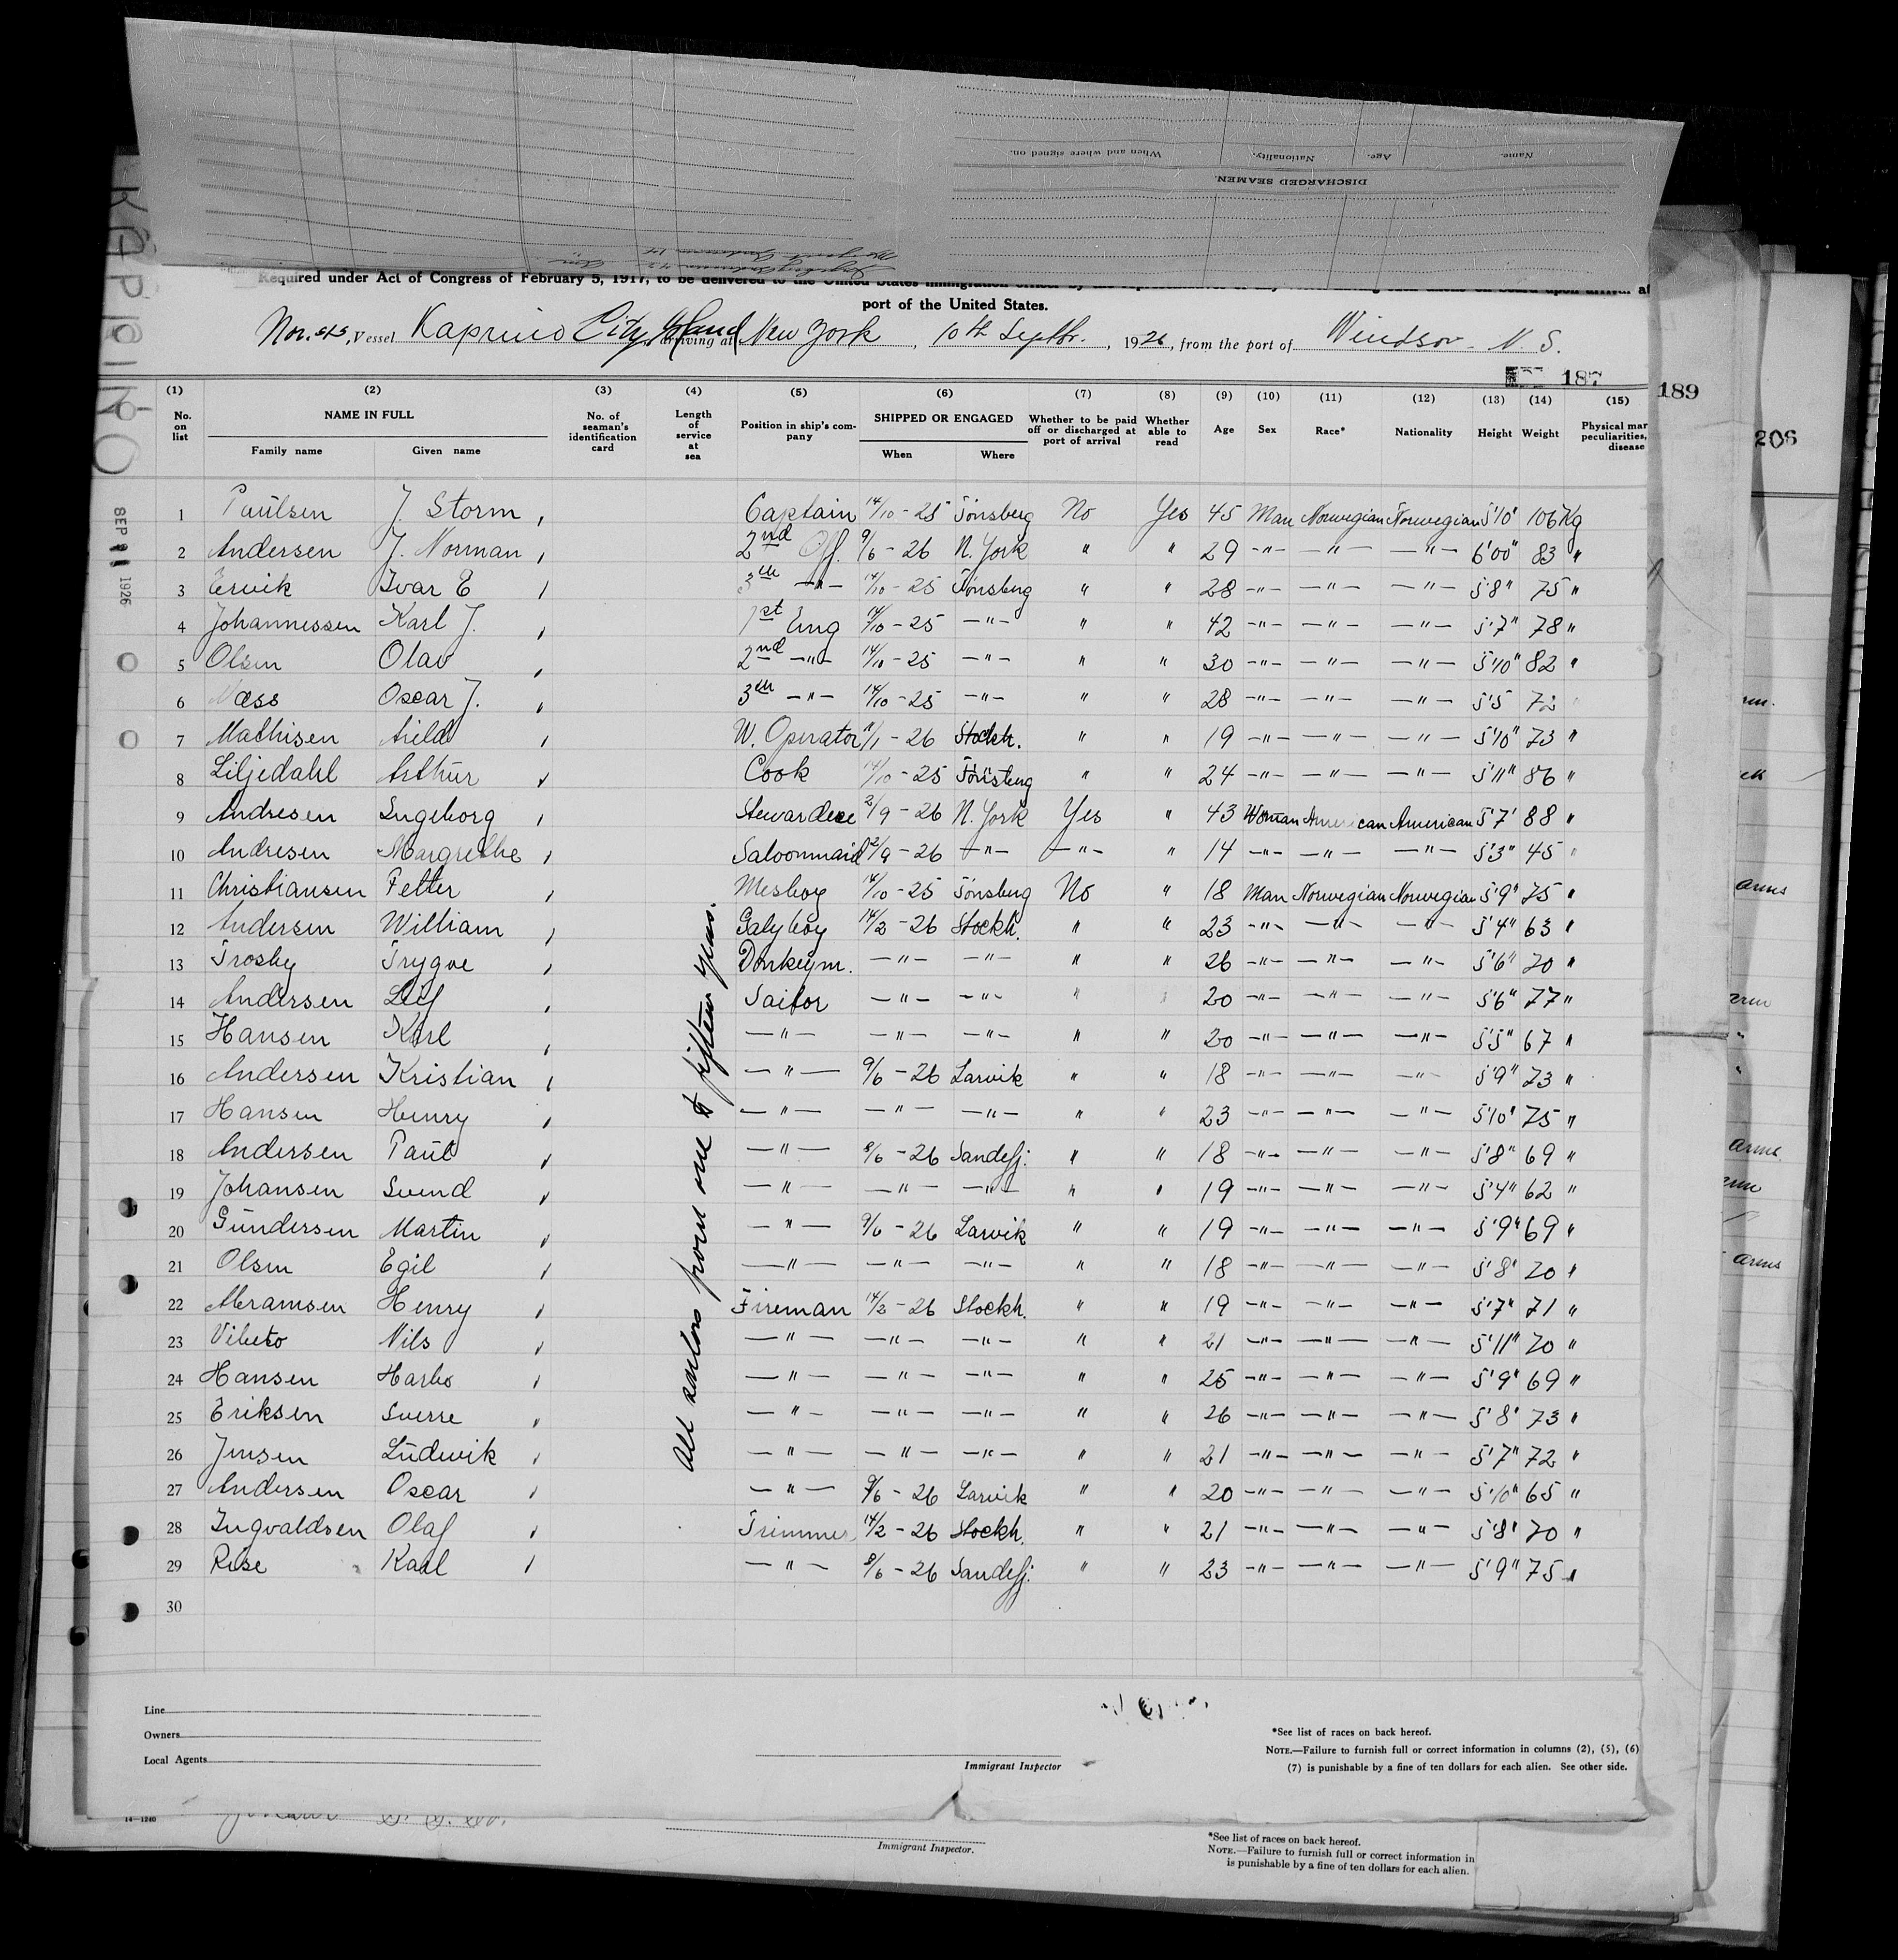 Name. Age. Nationality. When and where signed on.
DISCHARGED SEAMEN.
KAPRINO
Required under Act of Congress of February 5, 1917, to be delivered to the United States
port of the United States.
Nor. S/S, Vessel Kaprino City Island, arriving at New York, 10th Septbr., 1926, from the port of Windsor - N. S.
187
189
206
SEP 1926
(1) (2) (3) (4) (5) (6) (7) (8) (9) (10) (11) (12) (13) (14) (15)
No. on list NAME IN FULL Family name Given name No. of seaman's identification card Length of service at sea Position in ship's company SHIPPED OR ENGAGED When Where Whether to be paid off or discharged at port of arrival Whether able to read Age Sex Race* Nationality Height Weight Physical mar peculiarities, disease
All sailors from one to fifteen years.
1 Paulsen J. Storm Captain 14/10 - 25 Tönsberg No Yes 45 Man Norwegian Norwegian 5'10" 106 Kg
2 Andersen J. Norman 2nd Off. 9/6 - 26 N. York " " 29 -"- -"- -"- 6'00" 83 "
3 Ervik Ivar E 3th -"- 14/10 - 25 Tönsberg " " 28 -"- -"- -"- 5'8" 75 "
4 Johannessen Karl J. 1st Eng 14/10 - 25 -"- " " 42 -"- -"- -"- 5'7" 78 "
5 Olsen Olav 2nd -"- 14/10 - 25 -"- " " 30 -"- -"- -"- 5'10" 82 "
6 Næss Oscar J. 3th -"- 14/10 - 25 -"- " " 28 -"- -"- -"- 5'5 72 "
7 Mathisen Arild W. Operator - 26 Stockh. " " 19 -"- -"- -"- 5'10" 73 "
8 Liljedahl Arthur Cook 14/10 - 25 Tönsberg " " 24 -"- -"- -"- 5'11" 86 "
9 Andresen Ingeborg Stewardese 2/9 - 26 N. York Yes " 43 Woman American American 5'7' 88 "
10 Andresen Margrethe Saloonmaid 2/9 - 26 -"- -"- " 14 -"- -"- -"- 5'3" 45 "
11 Christiansen Petter Mesboy 14/10 - 25 Tönsberg No " 18 Man Norwegian Norwegian 5'9" 75 "
12 Andersen William Galyboy 14/2 - 26 Stockh. " " 23 -"- -"- -"- 5'4" 63 "
13 Trosby Trygve Donkeym. -"- -"- " " 26 -"- -"- -"- 5'6" 70 "
14 Andersen Leif Sailor -"- -"- " " 20 -"- -"- -"- 5'6" 77 "
15 Hansen Karl -"- -"- -"- " " 20 -"- -"- -"- 5'5" 67 "
16 Andersen Kristian -"- 9/6 - 26 Larvik " " 18 -"- -"- -"- 5'9" 73 "
17 Hansen Henry -"- -"- -"- " " 23 -"- -"- -"- 5'10" 75 "
18 Andersen Paul -"- 8/6 - 26 Sandefj. " " 18 -"- -"- -"- 5'8" 69 "
19 Johansen Svend -"- -"- -"- " " 19 -"- -"- -"- 5'4" 62 "
20 Gundersen Martin -"- 9/6 - 26 Larvik " " 19 -"- -"- -"- 5'9" 69 "
21 Olsen Egil -"- -"- -"- " " 18 -"- -"- -"- 5'8' 70 "
22 Abramsen Henry Fireman 14/2 - 26 Stockh. " " 19 -"- -"- -"- 5'7" 71 "
23 Vibeto Nils -"- -"- -"- " " 21 -"- -"- -"- 5'11" 70 "
24 Hansen Harbo -"- -"- -"- " " 25 -"- -"- -"- 5'9" 69 "
25 Eriksen Sverre -"- -"- -"- " " 26 -"- -"- -"- 5'8' 73 "
26 Jensen Ludwik -"- -"- -"- " " 21 -"- -"- -"- 5'7" 72 "
27 Andersen Oscar -"- 9/6 - 26 Larvik " " 20 -"- -"- -"- 5'10" 65 "
28 Ingvaldsen Olaf Trimmer 14/2 - 26 Stockh. " " 21 -"- -"- -"- 5'8' 70 "
29 Rise Karl -"- 8/6 - 26 Sandefj. " " 23 -"- -"- -"- 5'9" 75 "
30
arms
arms
arms
Line
Owners
Local Agents
Immigrant Inspector
*See list of races on back hereof.
NOTE.—Failure to furnish full or correct information in columns (2), (5), (6)
(7) is punishable by a fine of ten dollars for each alien. See other side.
14—1240
Immigrant Inspector.
*See list of races on back hereof.
NOTE.—Failure to furnish full or correct information in
is punishable by a fine of ten dollars for each alien.